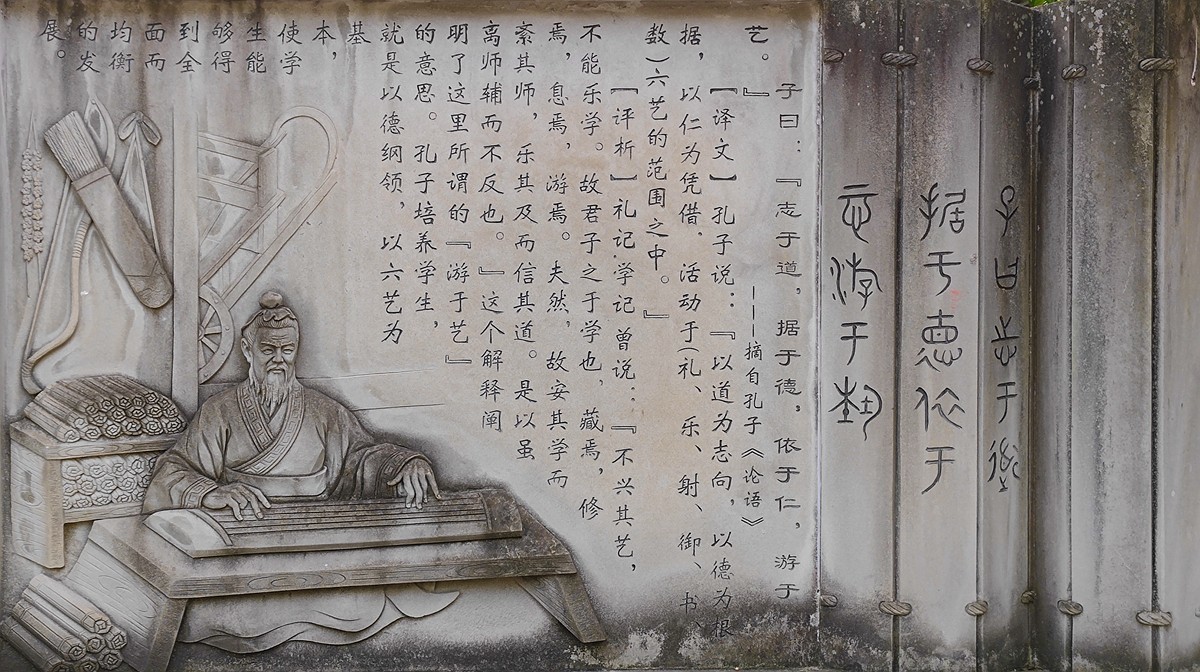 子曰志于道
据于德依于
仁游于艺
子曰：『志于道，据于德，依于仁，游于
艺。』
———摘自孔子《论语》
【译文】孔子说：『以道为志向，以德为根
据，以仁为凭借，活动于(礼、乐、射、御、书、
数)六艺的范围之中。』
【评析】礼记·学记曾说：『不兴其艺，
不能乐学。故君子之于学也，藏焉，修
焉，息焉，游焉。夫然，故安其学而
亲其师，乐其及而信其道。是以虽
离师辅而不反也。』这个解释阐
明了这里所谓的『游于艺』
的意思。孔子培养学生，
就是以德纲领，以六艺为
基
本，
使学
生能
够得
到全
面而
均衡
的发
展。